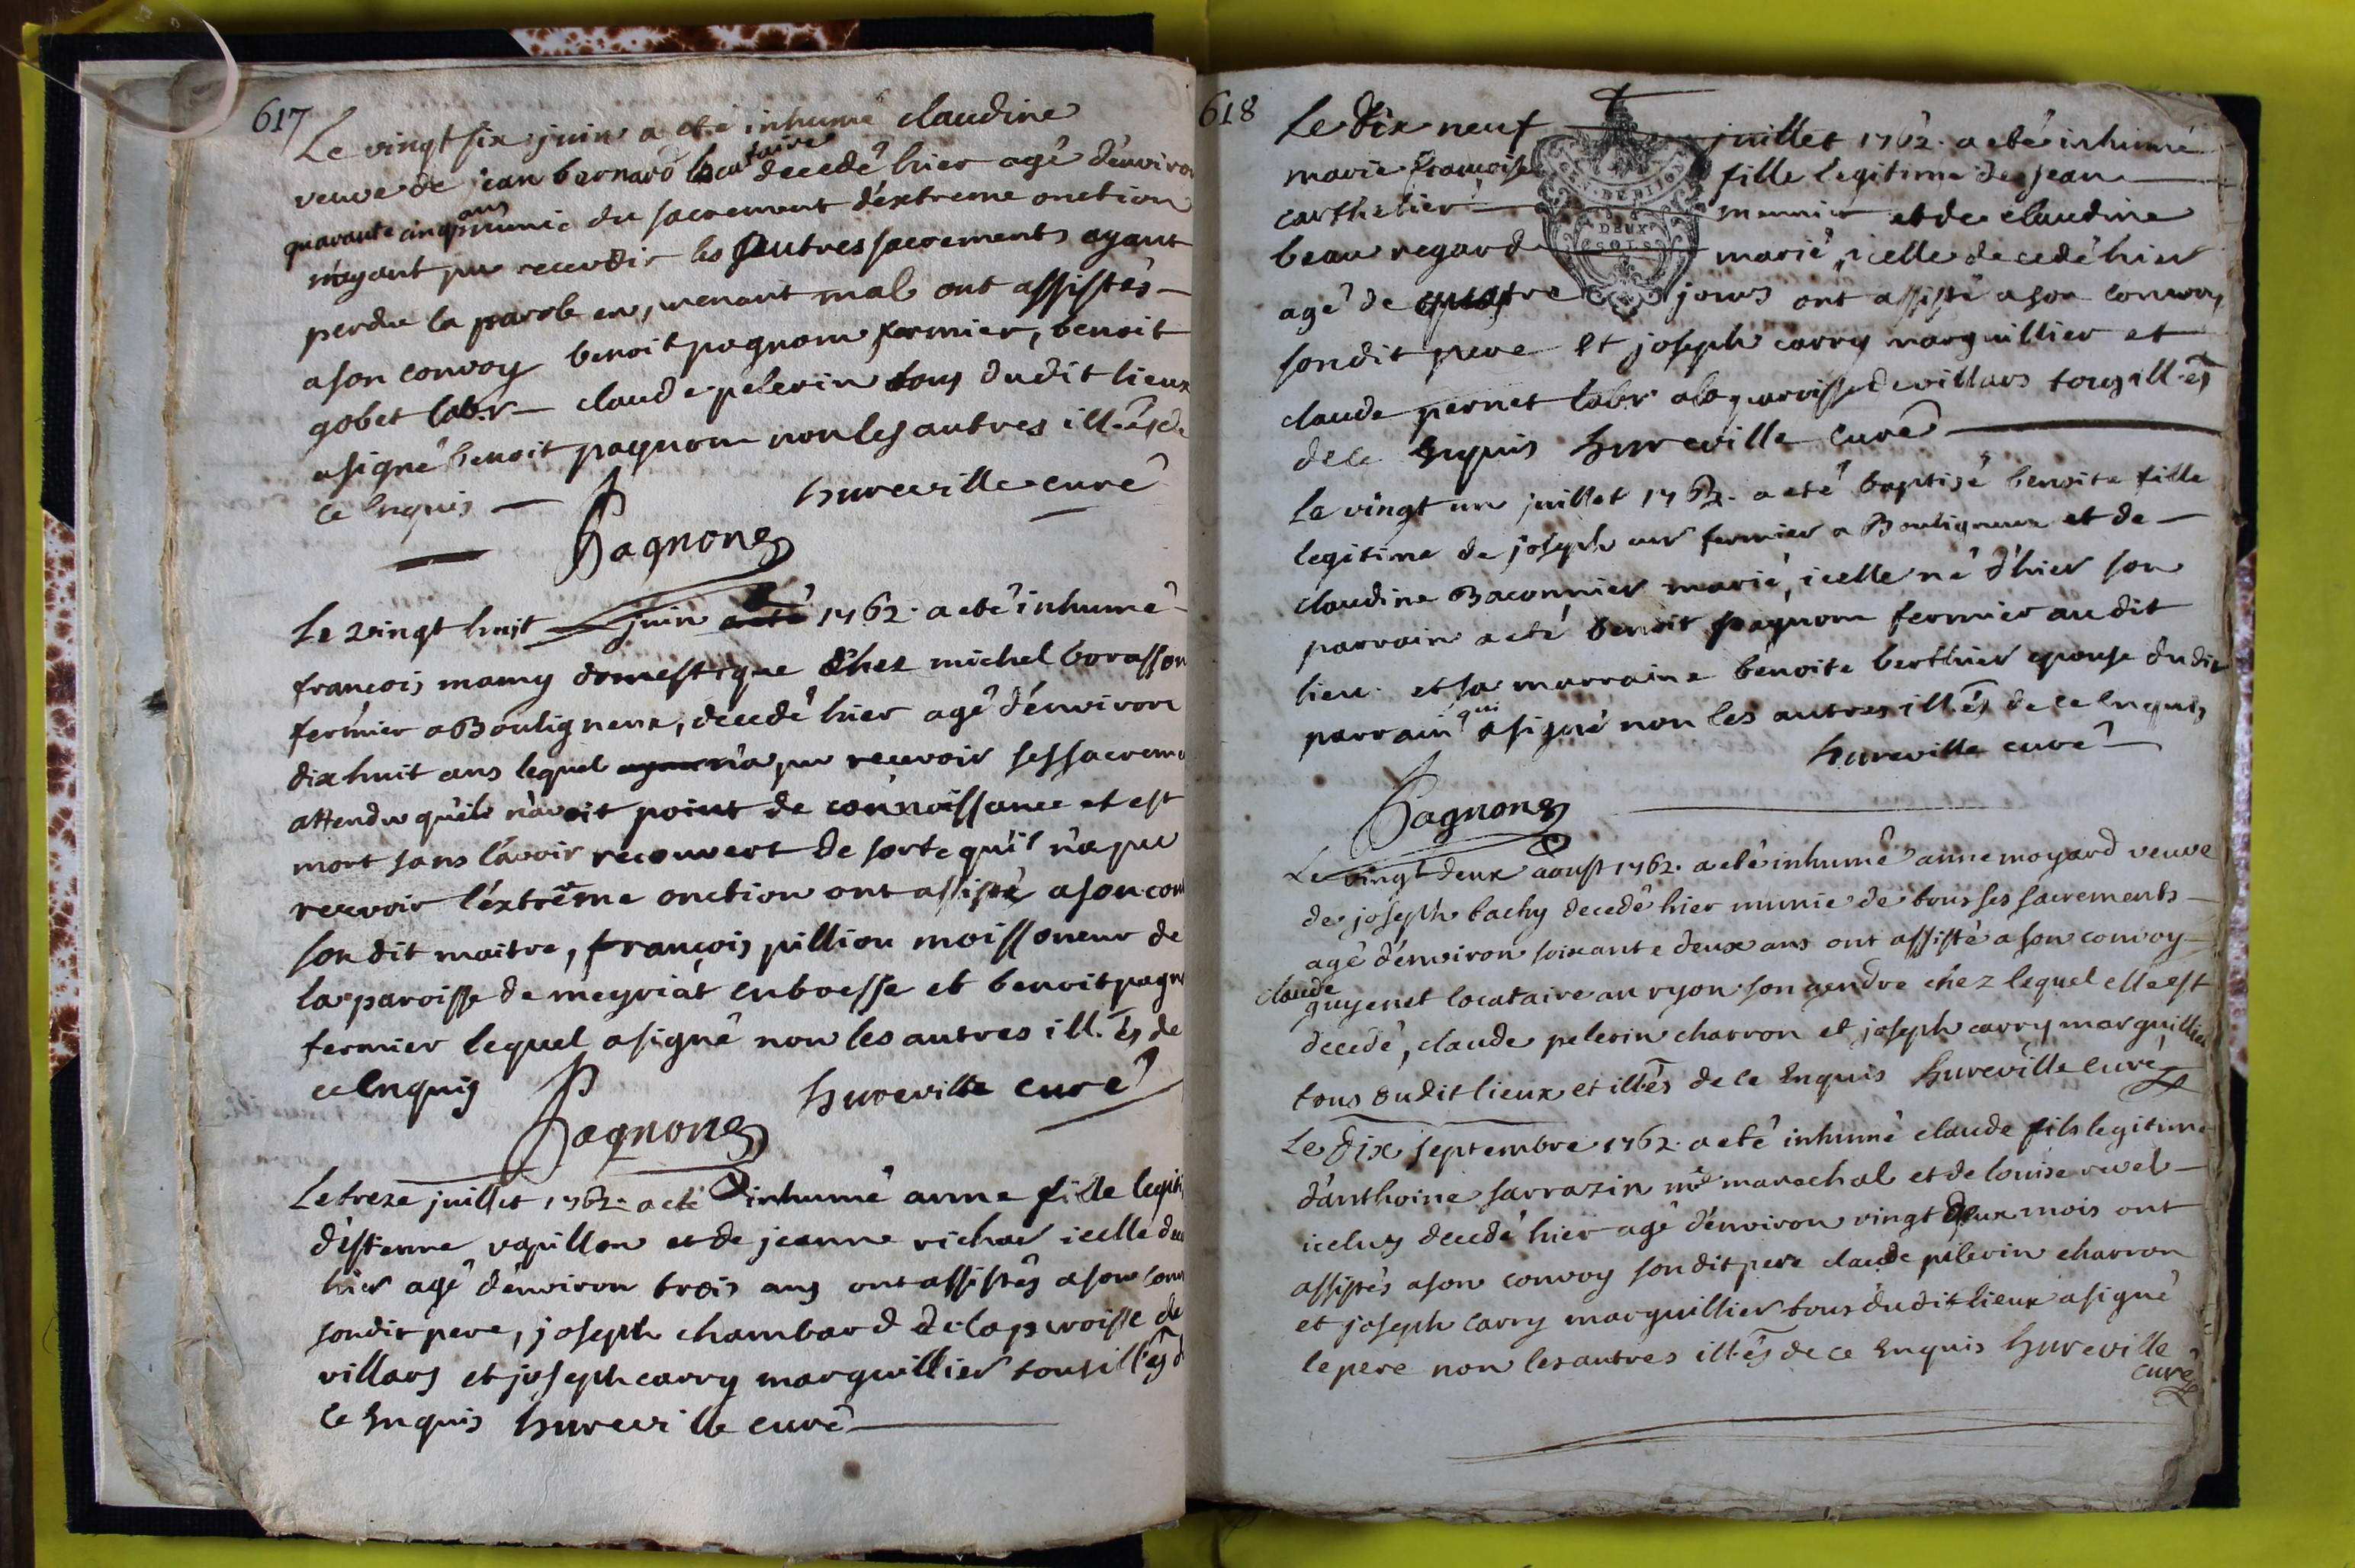 617
Le vingt six juin a eté inhumé claudine
veuve de jean bernard locataire decedé hier agé d'environ
quarante cinq ans munie du sacrement d'éxtreme onction
n'ayant pu recevoir les autres sacrements ayant
perdu la parole en prenant mal ont assistés
a son convoy benoit pagnon fermier, benoit
gobet labr. claude pelerin tous dudit lieux
a signé benoit pagnon non les autres ill.és de
ce Enquis hureville curé
Pagnon
Le vingt huit juin 1762. a eté inhumé
francois mamy domestique chez michel borasson
fermier a Bouligneux, decedé hier agé d'environ
dix huit ans lequel n'a pu recevoir ses sacrem
attendu qu'il n'avoit point de connoissance et est
mort sans l'avoir recouvert de sorte qu'il n'a pu
recevoir l'éxtrême onction ont assisté a son con
son dit maitre, françois pillion moissoneur de
la paroisse de meyriat en bresse et benoit pagn
fermier lequel a signé non les autres ill.és de
ce Enquis hureville curé
Pagnon
Le treze juillet 1762. a eté inhumé anne fille legit
d'éstienne vapillon et de jeanne richar icelle de
hier agé d'environ trois ans ont assistés a son con
son dit pere, joseph chambard de la paroisse de
villars et joseph carry marguillier tous ill.és d
ce Enquis hureville curé
618
Le dix neuf juillet 1762. a eté inhumé
marie francoise fille legitime de jean
carthelier meunier et de claudine
beauregard marié, icelle decedé hier
agé de quatre jours ont assisté a son convoy
son dit pere et joseph carry marguillier et
claude pernet labr. a la paroisse de villars tous ill.és
de ce Enquis hureville curé
DEUX
SOLS
Le vingt un juillet 1762. a eté baptisé benoite fille
legitime de joseph fermier a Bouligneux et de
claudine Baconnier marié, icelle né d'hier son
parrain a eté benoit pagnon fermier au dit
lieu et sa marraine benoite berthier epouse du dit
parrain qui a signé non les autres ill.és de ce Enquis
hureville curé
Pagnon
Le vingt deux aoust 1762. a eté inhumé anne moyard veuve
de joseph tachy decedé hier munie de tous ses sacrements
agé d'environ soixante deux ans ont assisté a son convoy
claude guyenet locataire au ryon son gendre chez lequel elle est
decedé, claude pelerin charron et joseph carry marguillier
tous dudit lieux et illés de ce Enquis hureville curé
Le dix septembre 1762. a eté inhumé claude fils legitime
d'anthoine sarrazin md marechal et de louise revel
iceluy decedé hier agé d'environ vingt deux mois ont
assistés a son convoy son dit pere claude pelerin charron
et joseph carry marguillier tous dudit lieux a signé
le pere non les autres ill.és de ce Enquis hureville
curé